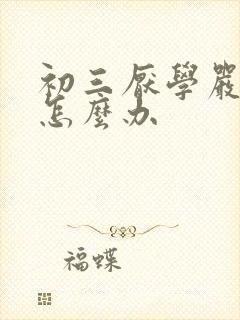 初三厭學嚴
怎麼办
福蝶